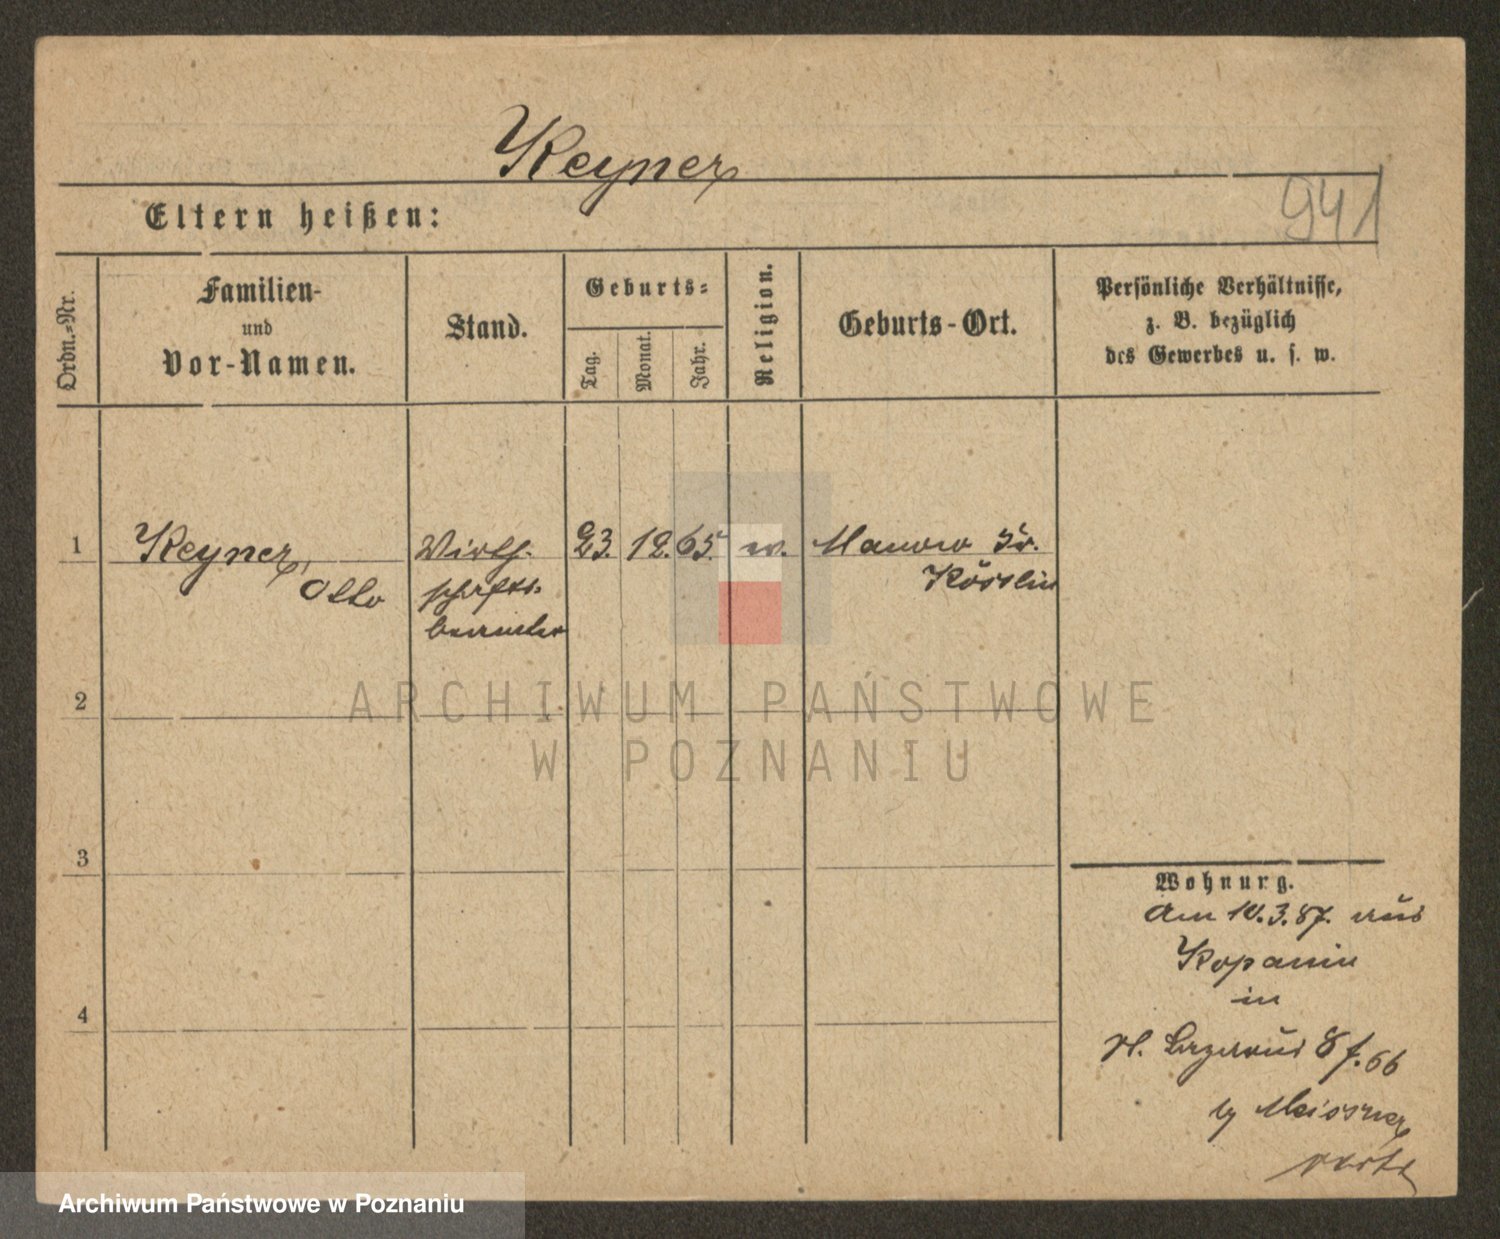 Keyner
941
Eltern heißen:
Ordn.-Nr.
Familien-
und
Vor-Namen.
Stand.
Geburts-
Tag.
Monat.
Jahr.
Religion.
Geburts-Ort.
Persönliche Verhältnisse,
z. B. bezüglich
des Gewerbes u. s. w.
1 Keyner, Wirth- 23. 12. 65. ev. Manow Kr.
Otto schafts- Köslin
beamter
2
ARCHIWUM PAŃSTWOWE
W POZNANIU
3
Wohnung.
Am 10.3.87. aus
Kopanin
in
St. Lazarus 8 f. 66
by Meissner
4
Archiwum Państwowe w Poznaniu